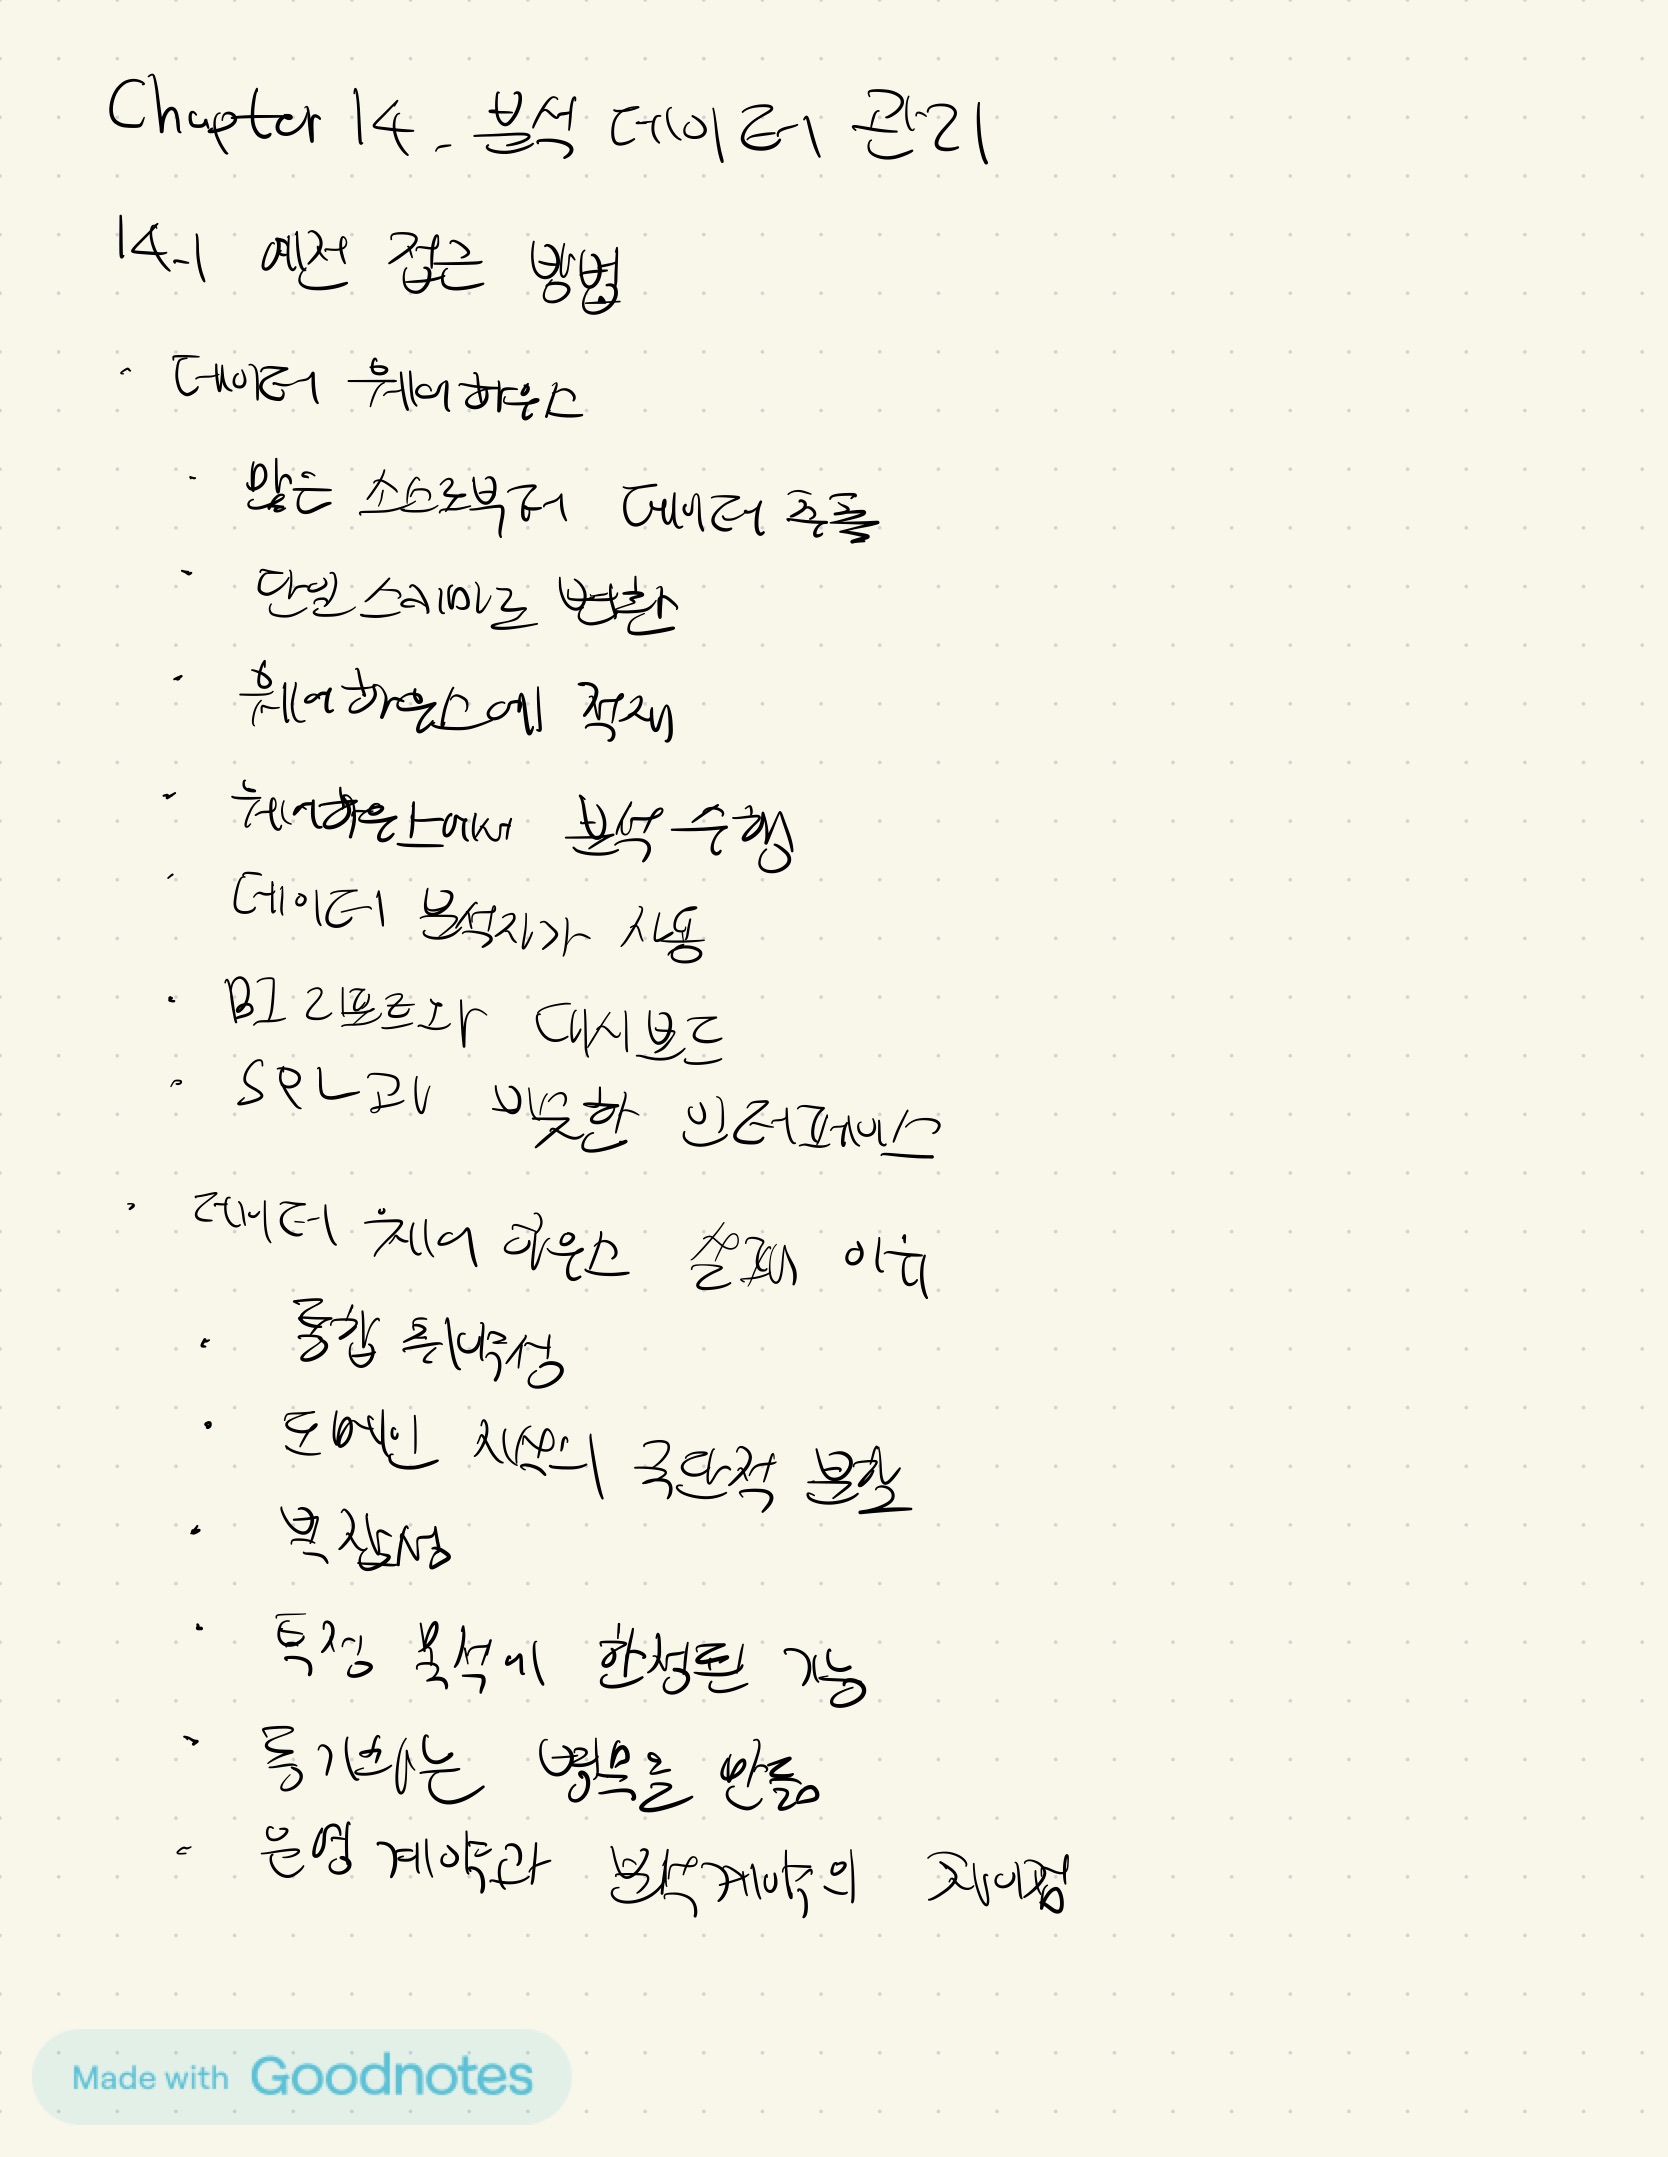 Chapter 14. 분석 데이터 관리
14-1 예전 접근 방법
· 데이터 웨어하우스
· 많은 소스로부터 데이터 추출
· 단일 스키마로 변환
· 웨어하우스에 적재
· 웨어하우스에서 분석 수행
· 데이터 분석자가 사용
· BI 리포트와 대시보드
· SQL과 비슷한 인터페이스
· 데이터 웨어 하우스 실패 이유
· 통합 취약성
· 도메인 지식의 극단적 분할
· 복잡성
· 특정 목적에 한정된 기능
· 동기화는 병목을 만듦
· 운영 계약과 분석계약의 차이점
Made with Goodnotes